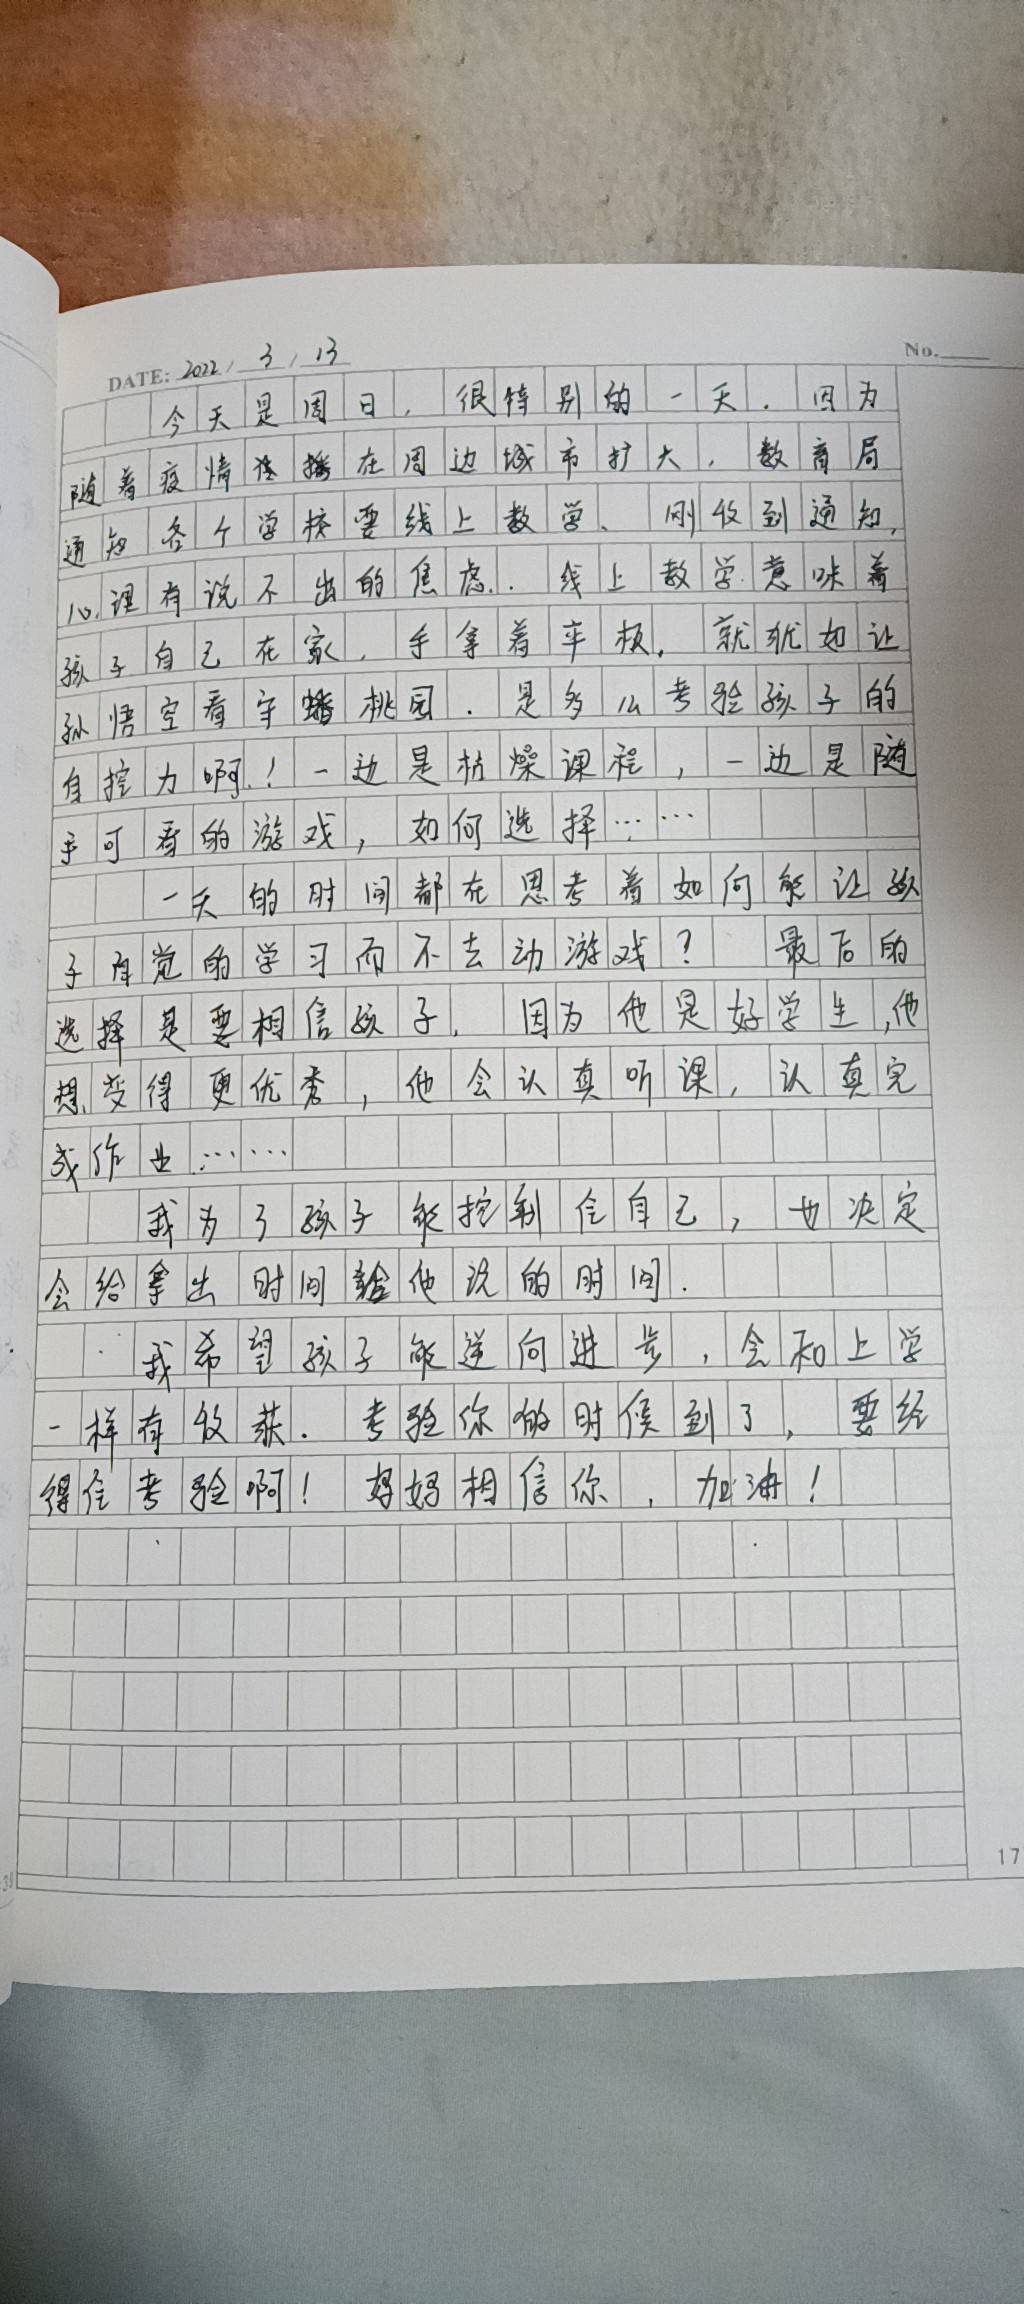 DATE: 2022 / 3 / 13
No.
今天是周日，很特别的一天．因为
随着疫情传播在周边城市扩大，教育局
通知各个学校要线上教学、刚收到通知，
心理有说不出的焦虑．线上教学意味着
孩子自己在家，手拿着平板，就犹如让
孙悟空看守蟠桃园．是多么考验孩子的
自控力啊！一边是枯燥课程，一边是随
手可看的游戏，如何选择……
一天的时间都在思考着如何能让孩
子自觉的学习而不去动游戏？最后的
选择是要相信孩子，因为他是好学生，他
想变得更优秀，他会认真听课，认真完
成作业……
我为了孩子能控制住自己，也决定
会给拿出时间给他说的时间．
我希望孩子能逆向进步，会和上学
一样有收获．考验你的时候到了，要经
得住考验啊！妈妈相信你，加油！
17